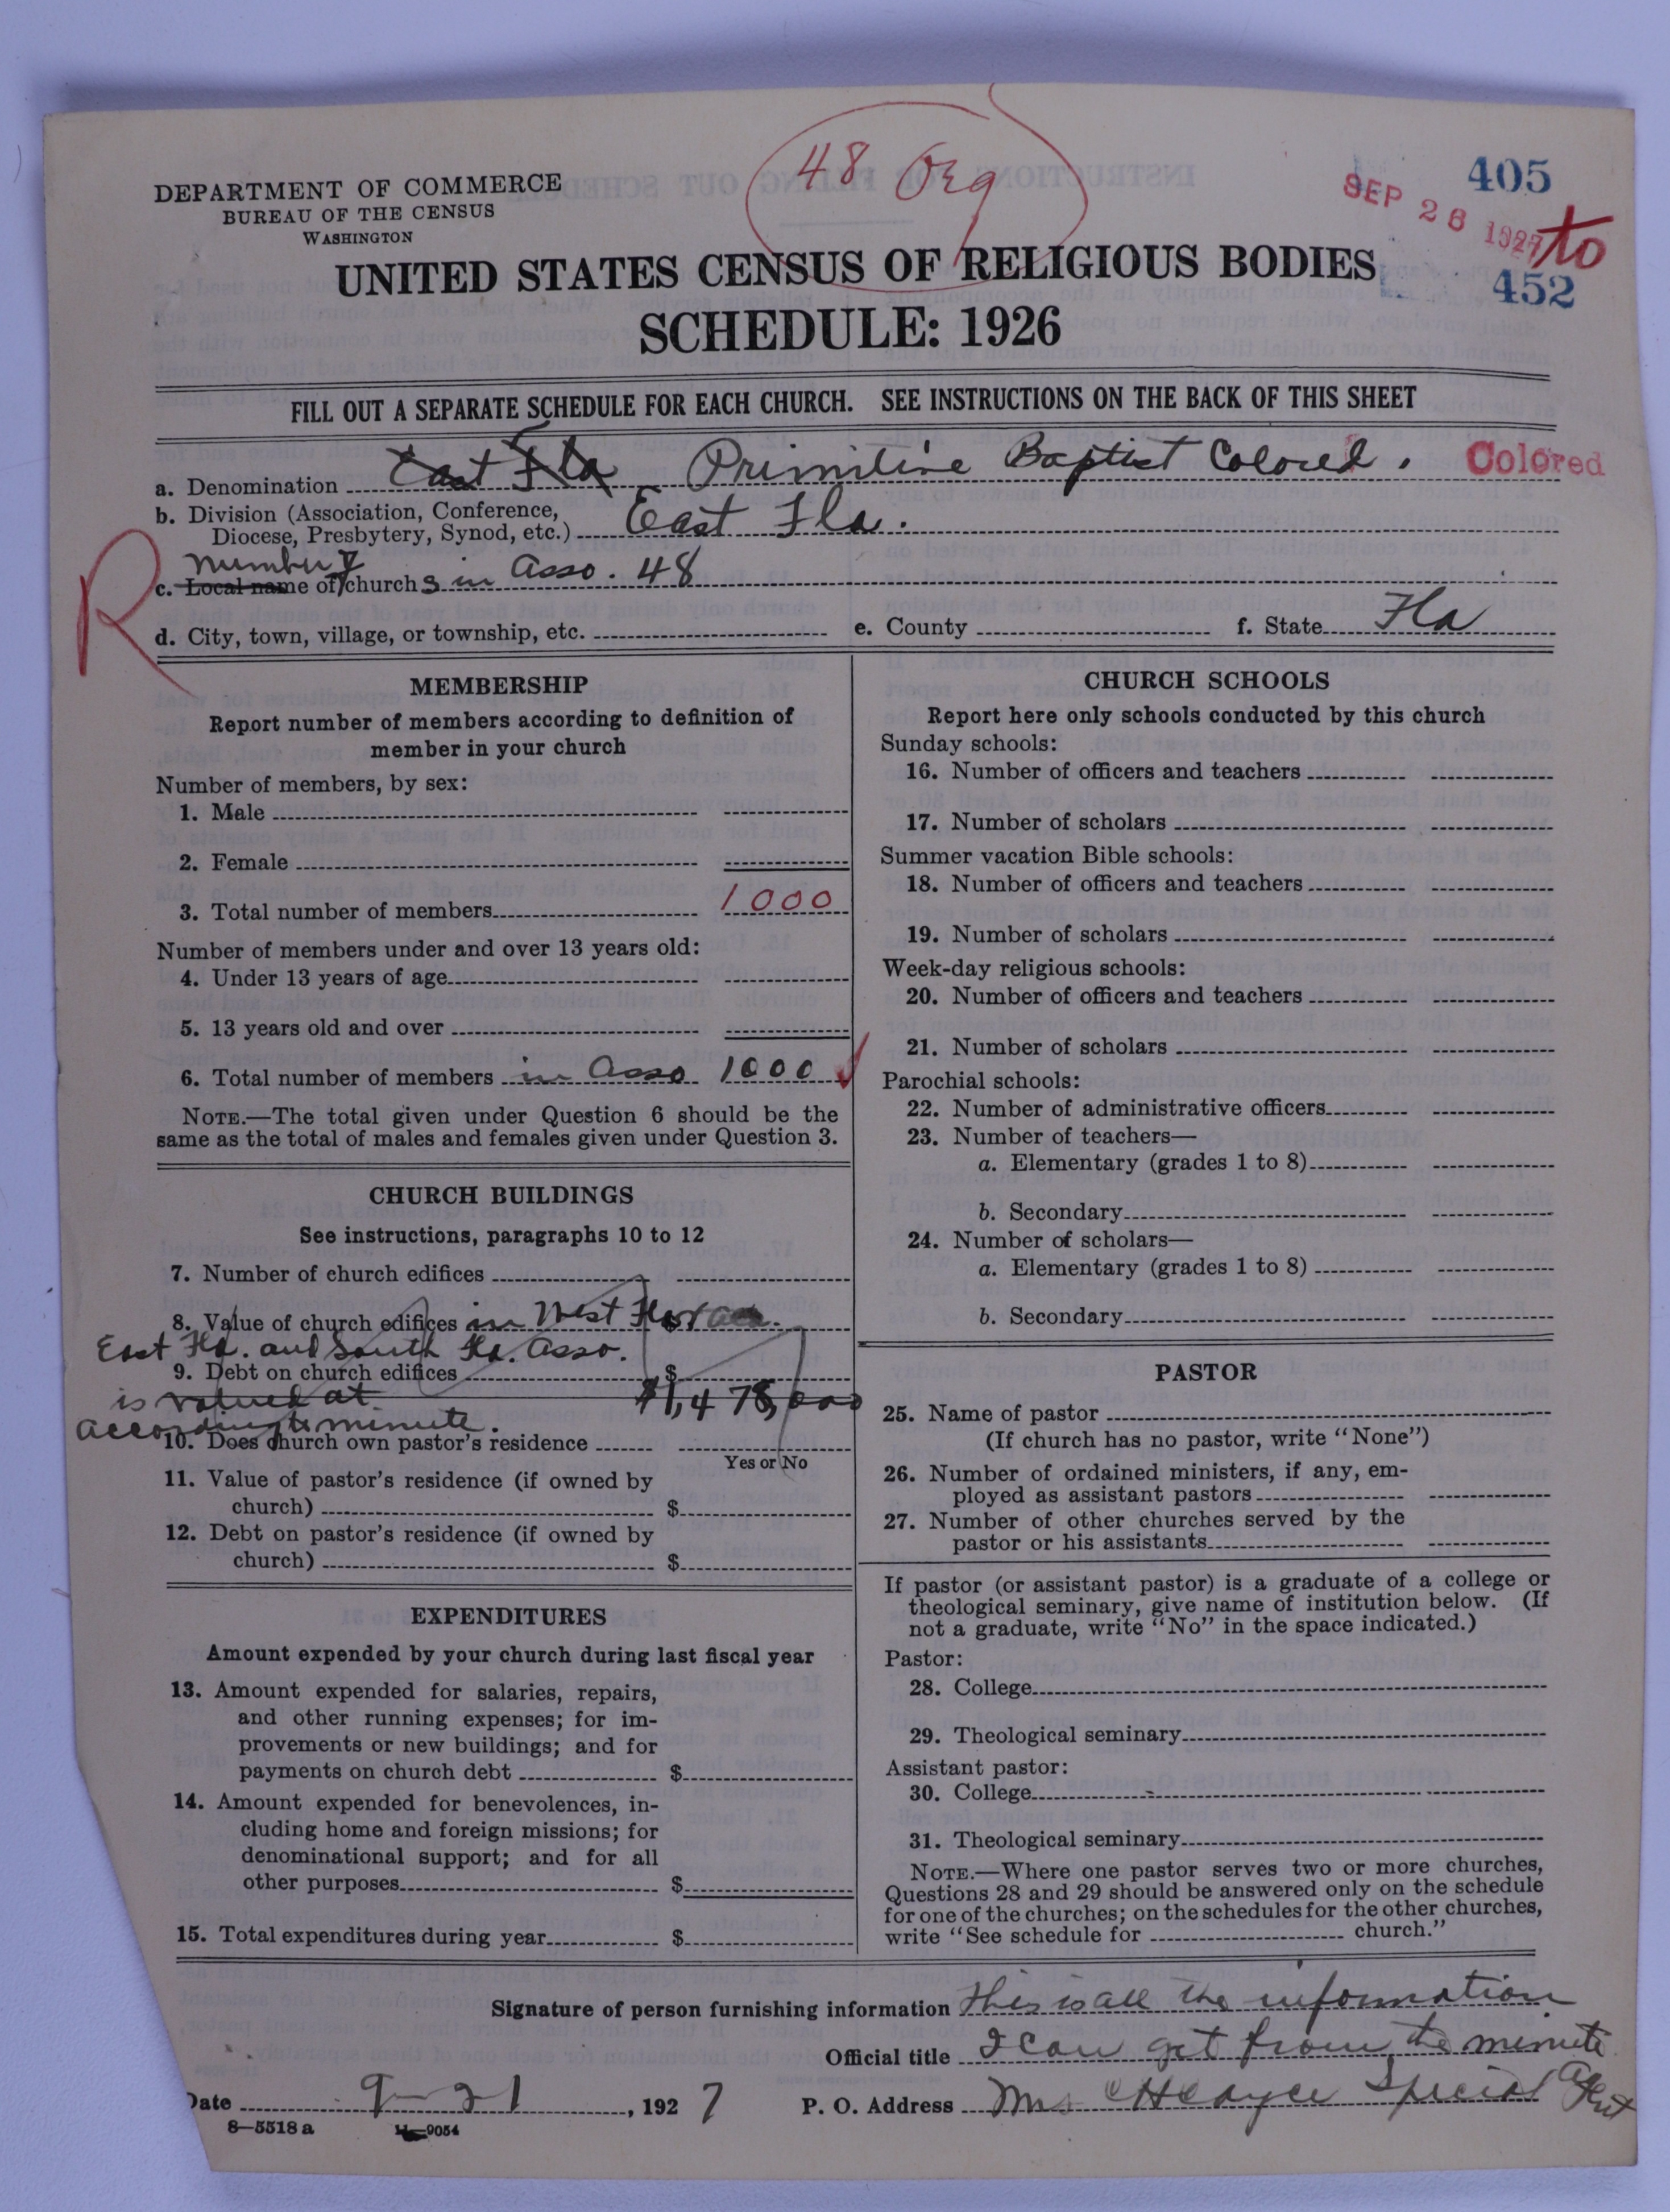 48 Org
405
SEP 28 1927
to
452
DEPARTMENT OF COMMERCE
BUREAU OF THE CENSUS
WASHINGTON
UNITED STATES CENSUS OF RELIGIOUS BODIES
SCHEDULE: 1926
FILL OUT A SEPARATE SCHEDULE FOR EACH CHURCH. SEE INSTRUCTIONS ON THE BACK OF THIS SHEET
a. Denomination East Fla Primitive Baptist Colored. Colored
b. Division (Association, Conference, Diocese, Presbytery, Synod, etc.) East Fla.
R
Number of
c. Local name of churchs in Asso. 48
d. City, town, village, or township, etc. e. County f. State Fla
MEMBERSHIP
Report number of members according to definition of
member in your church
Number of members, by sex:
1. Male
2. Female
3. Total number of members 1000
Number of members under and over 13 years old:
4. Under 13 years of age
5. 13 years old and over
6. Total number of members in Asso 1000
NOTE.—The total given under Question 6 should be the
same as the total of males and females given under Question 3.
CHURCH BUILDINGS
See instructions, paragraphs 10 to 12
7. Number of church edifices
8. Value of church edifices in West Fla
East Fla. and South Fla. Asso.
9. Debt on church edifices $
is valued at $1,478,000
according to minute.
10. Does church own pastor's residence
Yes or No
11. Value of pastor's residence (if owned by
church) $
12. Debt on pastor's residence (if owned by
church) $
EXPENDITURES
Amount expended by your church during last fiscal year
13. Amount expended for salaries, repairs,
and other running expenses; for im-
provements or new buildings; and for
payments on church debt $
14. Amount expended for benevolences, in-
cluding home and foreign missions; for
denominational support; and for all
other purposes $
15. Total expenditures during year $
CHURCH SCHOOLS
Report here only schools conducted by this church
Sunday schools:
16. Number of officers and teachers
17. Number of scholars
Summer vacation Bible schools:
18. Number of officers and teachers
19. Number of scholars
Week-day religious schools:
20. Number of officers and teachers
21. Number of scholars
Parochial schools:
22. Number of administrative officers
23. Number of teachers—
a. Elementary (grades 1 to 8)
b. Secondary
24. Number of scholars—
a. Elementary (grades 1 to 8)
b. Secondary
PASTOR
25. Name of pastor
(If church has no pastor, write "None")
26. Number of ordained ministers, if any, em-
ployed as assistant pastors
27. Number of other churches served by the
pastor or his assistants
If pastor (or assistant pastor) is a graduate of a college or
theological seminary, give name of institution below. (If
not a graduate, write "No" in the space indicated.)
Pastor:
28. College
29. Theological seminary
Assistant pastor:
30. College
31. Theological seminary
NOTE.—Where one pastor serves two or more churches,
Questions 28 and 29 should be answered only on the schedule
for one of the churches; on the schedules for the other churches,
write "See schedule for church."
Signature of person furnishing information This is all the information
Official title I can get from the minute
Date 9-21, 1927 P. O. Address Mrs Special Agent
8-5518 a 11-9054